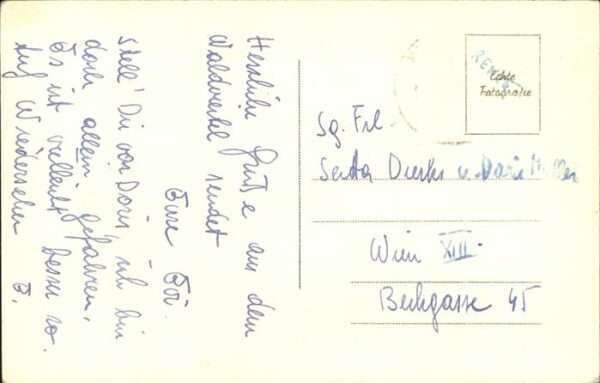 Herzliche Grüße aus dem
Waldviertel sendet
Eure Evi.
Stell' Dir vor Doris, ich bin
doch allein gefahren.
Es ist vielleicht besser so.
Auf Wiedersehen E.
Echte
Fotografie
Sg. Frl.
Senta Dierks u. Doris
Wien XIII.
Beckgasse 45